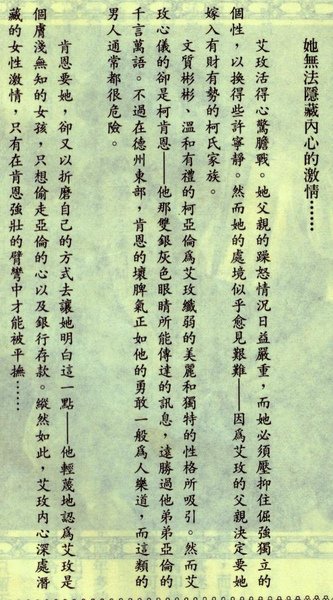 她無法隱藏內心的激情……
艾玫活得心驚膽戰。她父親的躁怒情況日益嚴重，而她必須壓抑住倔強獨立的
個性，以換得些許寧靜。然而她的處境似乎愈見艱難——因爲艾玫的父親決定要她
嫁入有財有勢的柯氏家族。
文質彬彬、溫和有禮的柯亞倫爲艾玫纖弱的美麗和獨特的性格所吸引。然而艾
玫心儀的卻是柯肯恩——他那雙銀灰色眼睛所能傳達的訊息，遠勝過他弟弟亞倫的
千言萬語。不過在德州東部，肯恩的壞脾氣正如他的勇敢一般爲人樂道，而這類的
男人通常都很危險。
肯恩要她，卻又以折磨自己的方式去讓她明白這一點——他輕蔑地認爲艾玫是
個膚淺無知的女孩，只想偷走亞倫的心以及銀行存款。縱然如此，艾玫內心深處潛
藏的女性激情，只有在肯恩強壯的臂彎中才能被平撫……